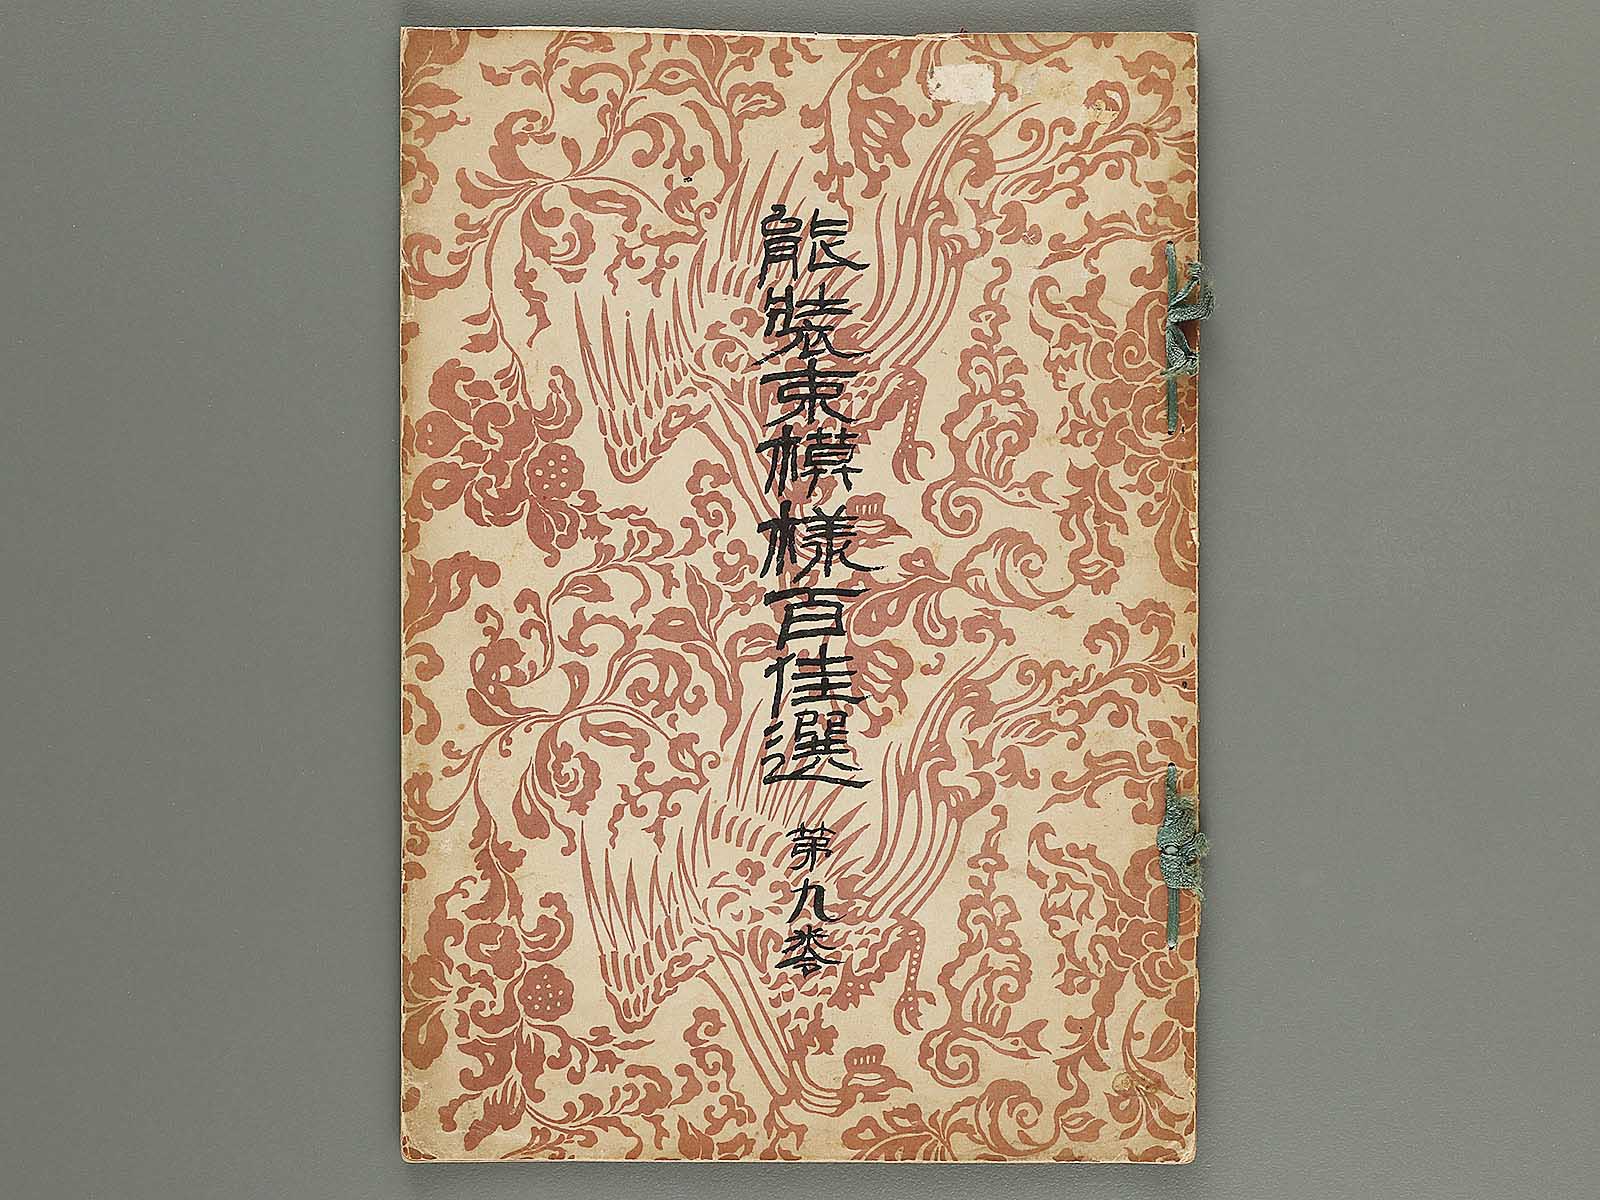 能装束模様百佳選 第九巻